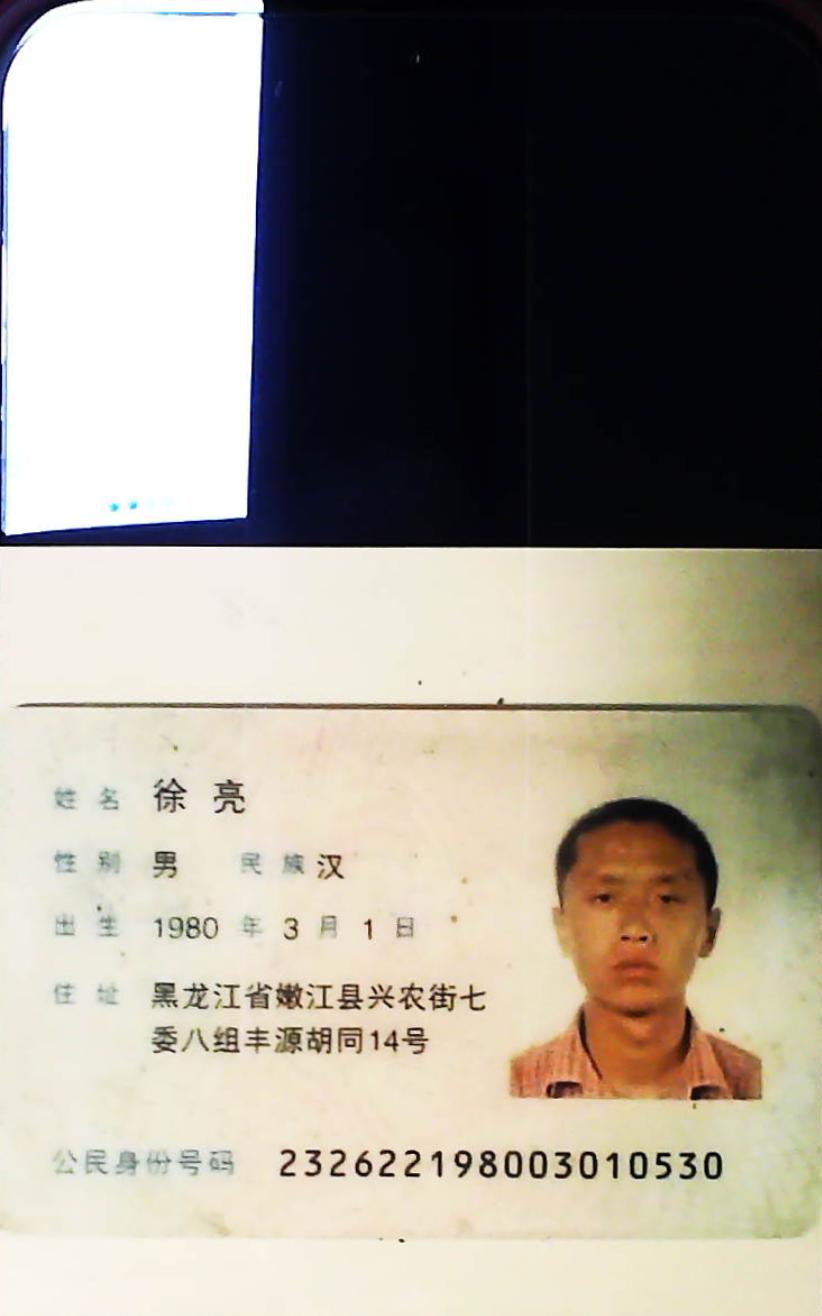 姓名 徐亮
性别 男 民族 汉
出生 1980 年 3 月 1 日
住址 黑龙江省嫩江县兴农街七
委八组丰源胡同14号
公民身份号码 232622198003010530